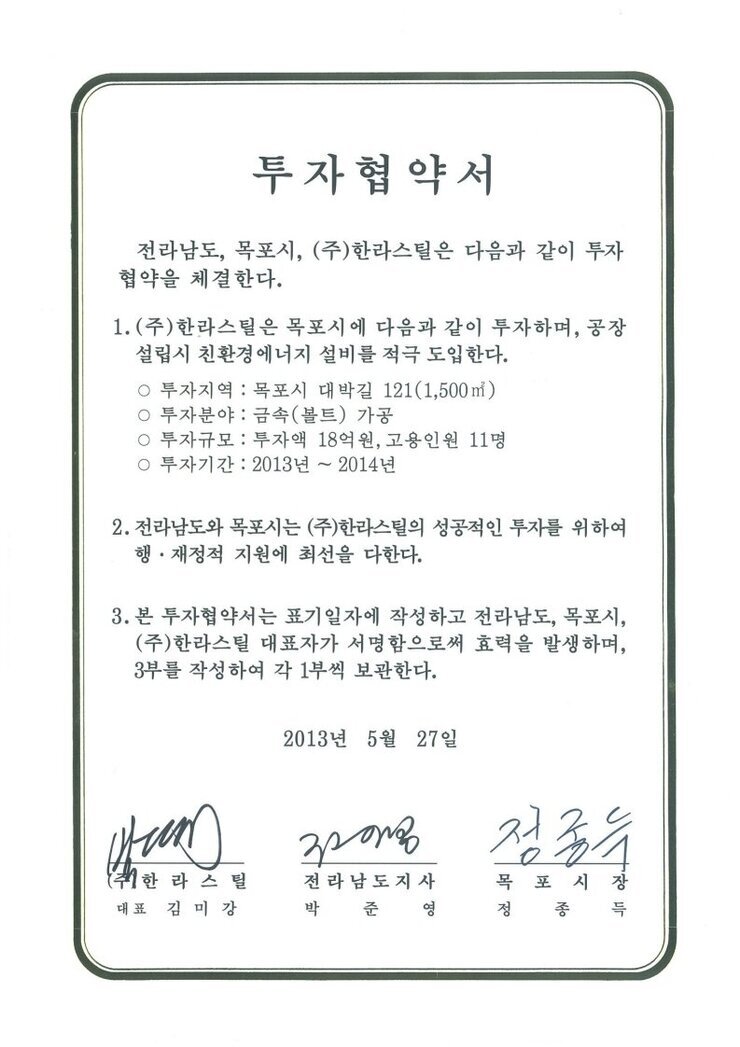 투자협약서
전라남도, 목포시, (주)한라스틸은 다음과 같이 투자
협약을 체결한다.
1. (주)한라스틸은 목포시에 다음과 같이 투자하며, 공장
설립시 친환경에너지 설비를 적극 도입한다.
○ 투자지역 : 목포시 대박길 121(1,500㎡)
○ 투자분야 : 금속(볼트) 가공
○ 투자규모 : 투자액 18억원, 고용인원 11명
○ 투자기간 : 2013년 ~ 2014년
2. 전라남도와 목포시는 (주)한라스틸의 성공적인 투자를 위하여
행·재정적 지원에 최선을 다한다.
3. 본 투자협약서는 표기일자에 작성하고 전라남도, 목포시,
(주)한라스틸 대표자가 서명함으로써 효력을 발생하며,
3부를 작성하여 각 1부씩 보관한다.
2013년 5월 27일
(주)한라스틸 전라남도지사 목포시장
대표 김미강 박준영 정종득